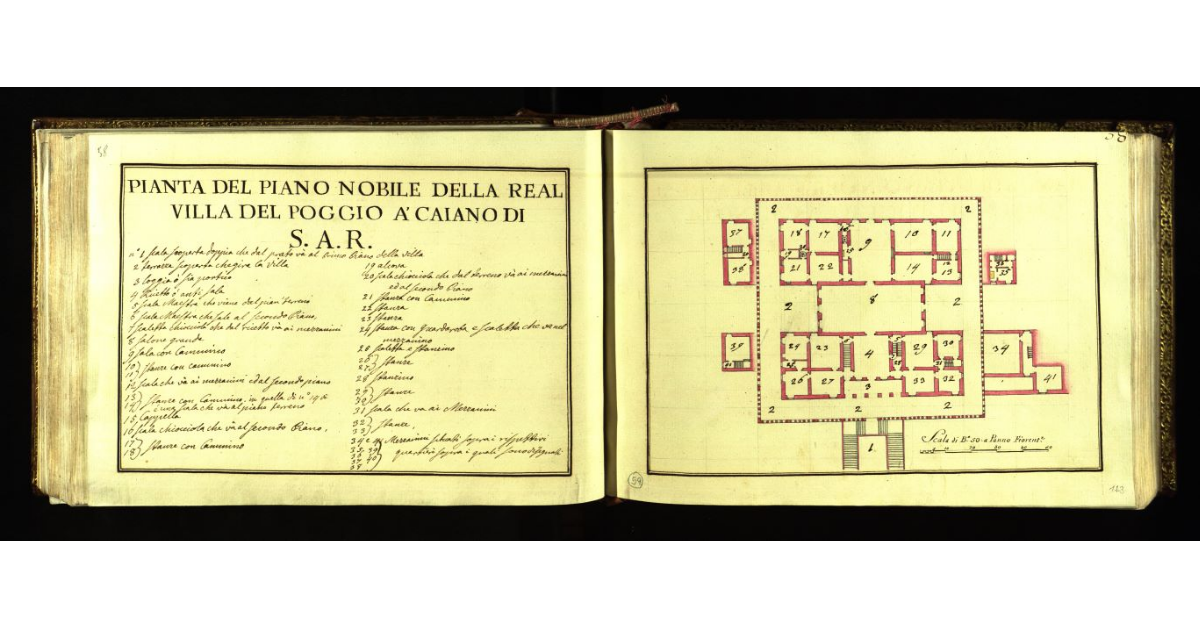 58
PIANTA DEL PIANO NOBILE DELLA REAL
VILLA DEL POGGIO A' CAIANO DI
S. A. R.
n.° 1 Scala scoperta doppia che dal prato và al primo Piano della villa
2 terrazza scoperta che gira la villa
3 Loggia ò sia portico
4 Ricetto ò anti sala
5 Scala Maestra che viene dal pian terreno
6 Scala Maestra che sale al secondo Piano,
7 Scaletta chiocciola che dal ricetto và ai mezzanini
8 Salone grande
9 Sala con Cammino
10) Stanze con cammino
11)
12 Scala che và ai mezzanini ed al secondo piano
13) Stanze con Cammino, in quella di n.° 14 è
14) una scala che và al piano terreno
15 Cappella
16 Scala chiocciola che và al secondo Piano,
17) Stanze con Cammino
18)
19 alcova
20 Scala chiocciola che dal terreno và ai mezzanini
ed al secondo Piano
21 Stanza con Cammino
22 Stanza
23 Stanza
24 Stanza con guardaroba e scaletta che và nel
mezzanino
25 Scaletta e Stanzino
26) Stanze
27)
28 Stanzino
29) Stanze
30)
31 Scala che va ai Mezzanini
32) Stanze,
33)
34 e 41 Mezzanini situati sopra i rispettivi
quartieri sopra i quali sono disegnati
35 39
36 40
37
38
58
2 2
37 18 17 9 10 11
38 21 22 14 13
2 8 2
39 24 23 4 29 30 34
26 27 3 33 32 41
2 2 2
1.
Scala di B.ª 50: a Panno Fiorent.ª
59
123